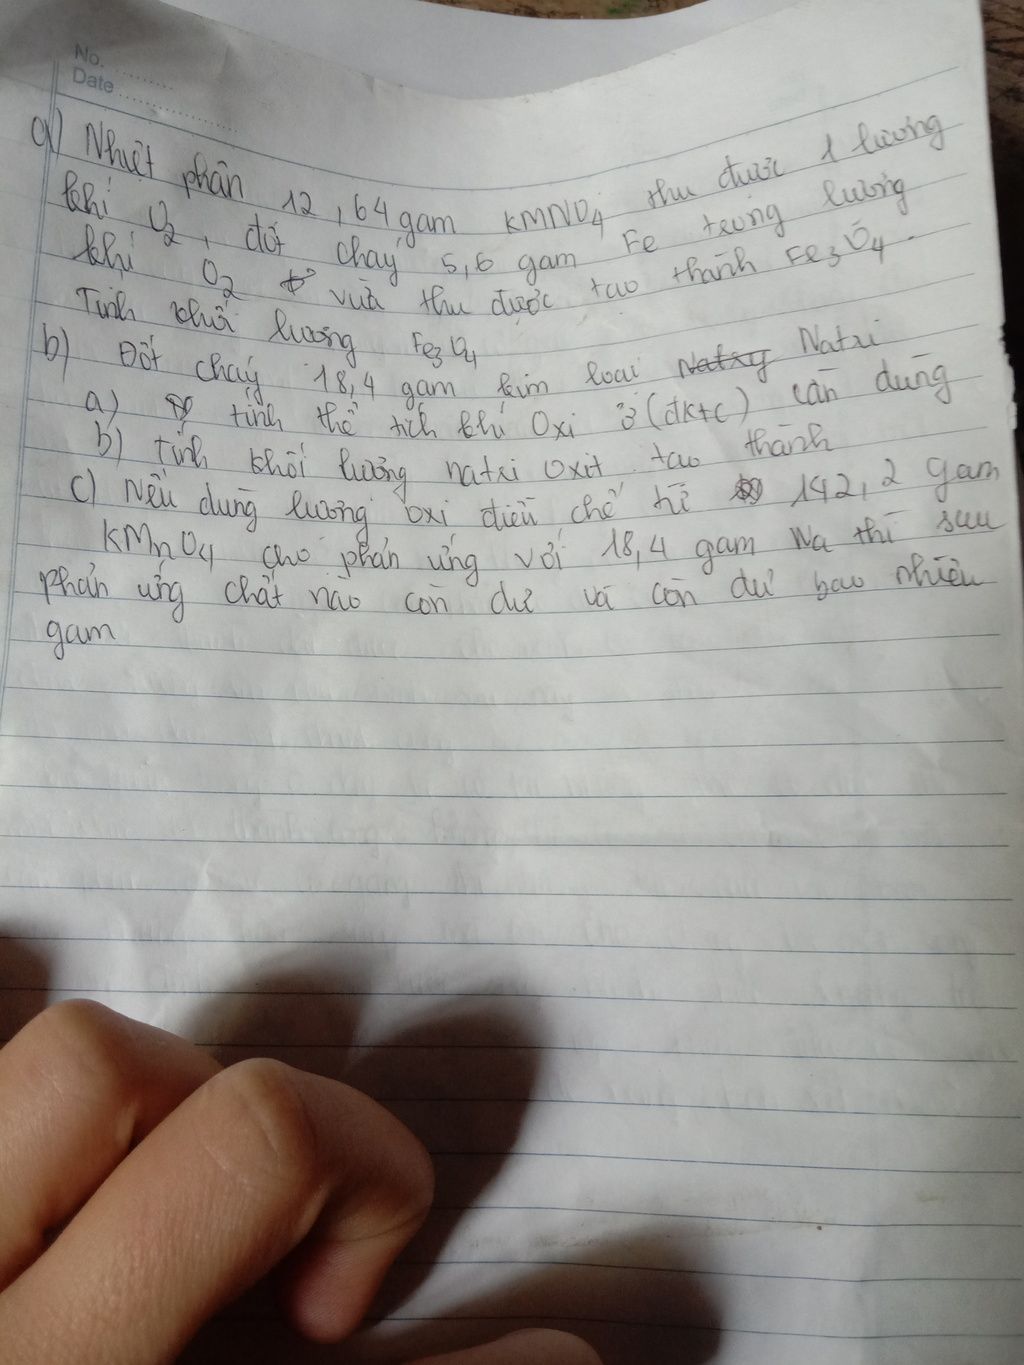 No. ............
Date ....................
a) Nhiệt phân 12,64 gam KMNO4 thu được 1 lương
khí O2, đốt cháy 5,6 gam Fe trong lượng
khí O2 vừa thu được tạo thành Fe3O4.
Tính khối lương Fe3O4
b) Đốt cháy 18,4 gam kim loại Natri
a) tính thể tích khí Oxi ở (đktc) cần dùng
b) Tính khối lương natri Oxit tạo thành
c) Nếu dùng lượng oxi điều chế từ 142,2 gam
KMnO4 cho phản ứng với 18,4 gam Na thì sau
phản ứng chất nào còn dư và còn dư bao nhiêu
gam